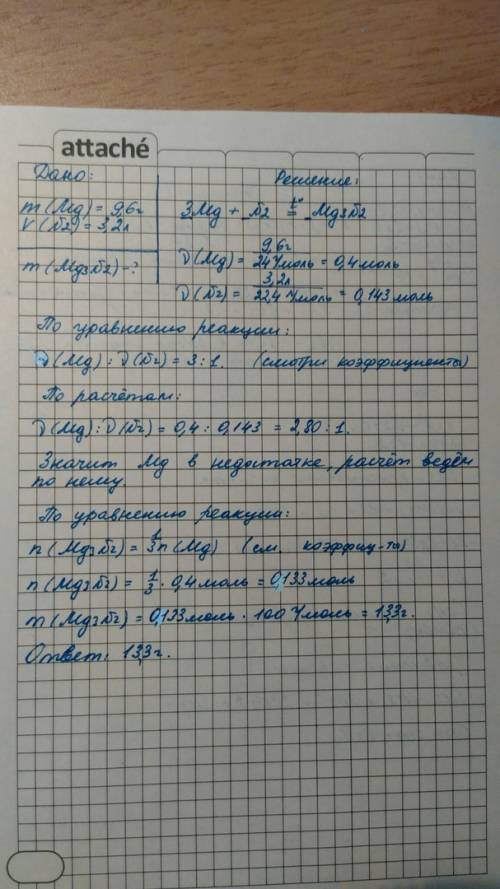 attaché
Дано:
Решение:
m(Mg) = 9,6г
V(N2) = 3,2л
m(Mg3N2) - ?
3Mg + N2 t° = Mg3N2
ν(Mg) = 9,6г / 24 г/моль = 0,4 моль
ν(N2) = 3,2л / 22,4 л/моль = 0,143 моль
По уравнению реакции:
ν(Mg) : ν(N2) = 3 : 1. (смотри коэффициенты)
По расчётам:
ν(Mg) : ν(N2) = 0,4 : 0,143 = 2,80 : 1.
Значит Mg в недостатке, расчёт ведём
по нему.
По уравнению реакции:
n(Mg3N2) = 1/3 n(Mg) (см. коэффиц-ты)
n(Mg3N2) = 1/3 · 0,4 моль = 0,133 моль
m(Mg3N2) = 0,133 моль · 100 г/моль = 13,3 г.
Ответ: 13,3 г.